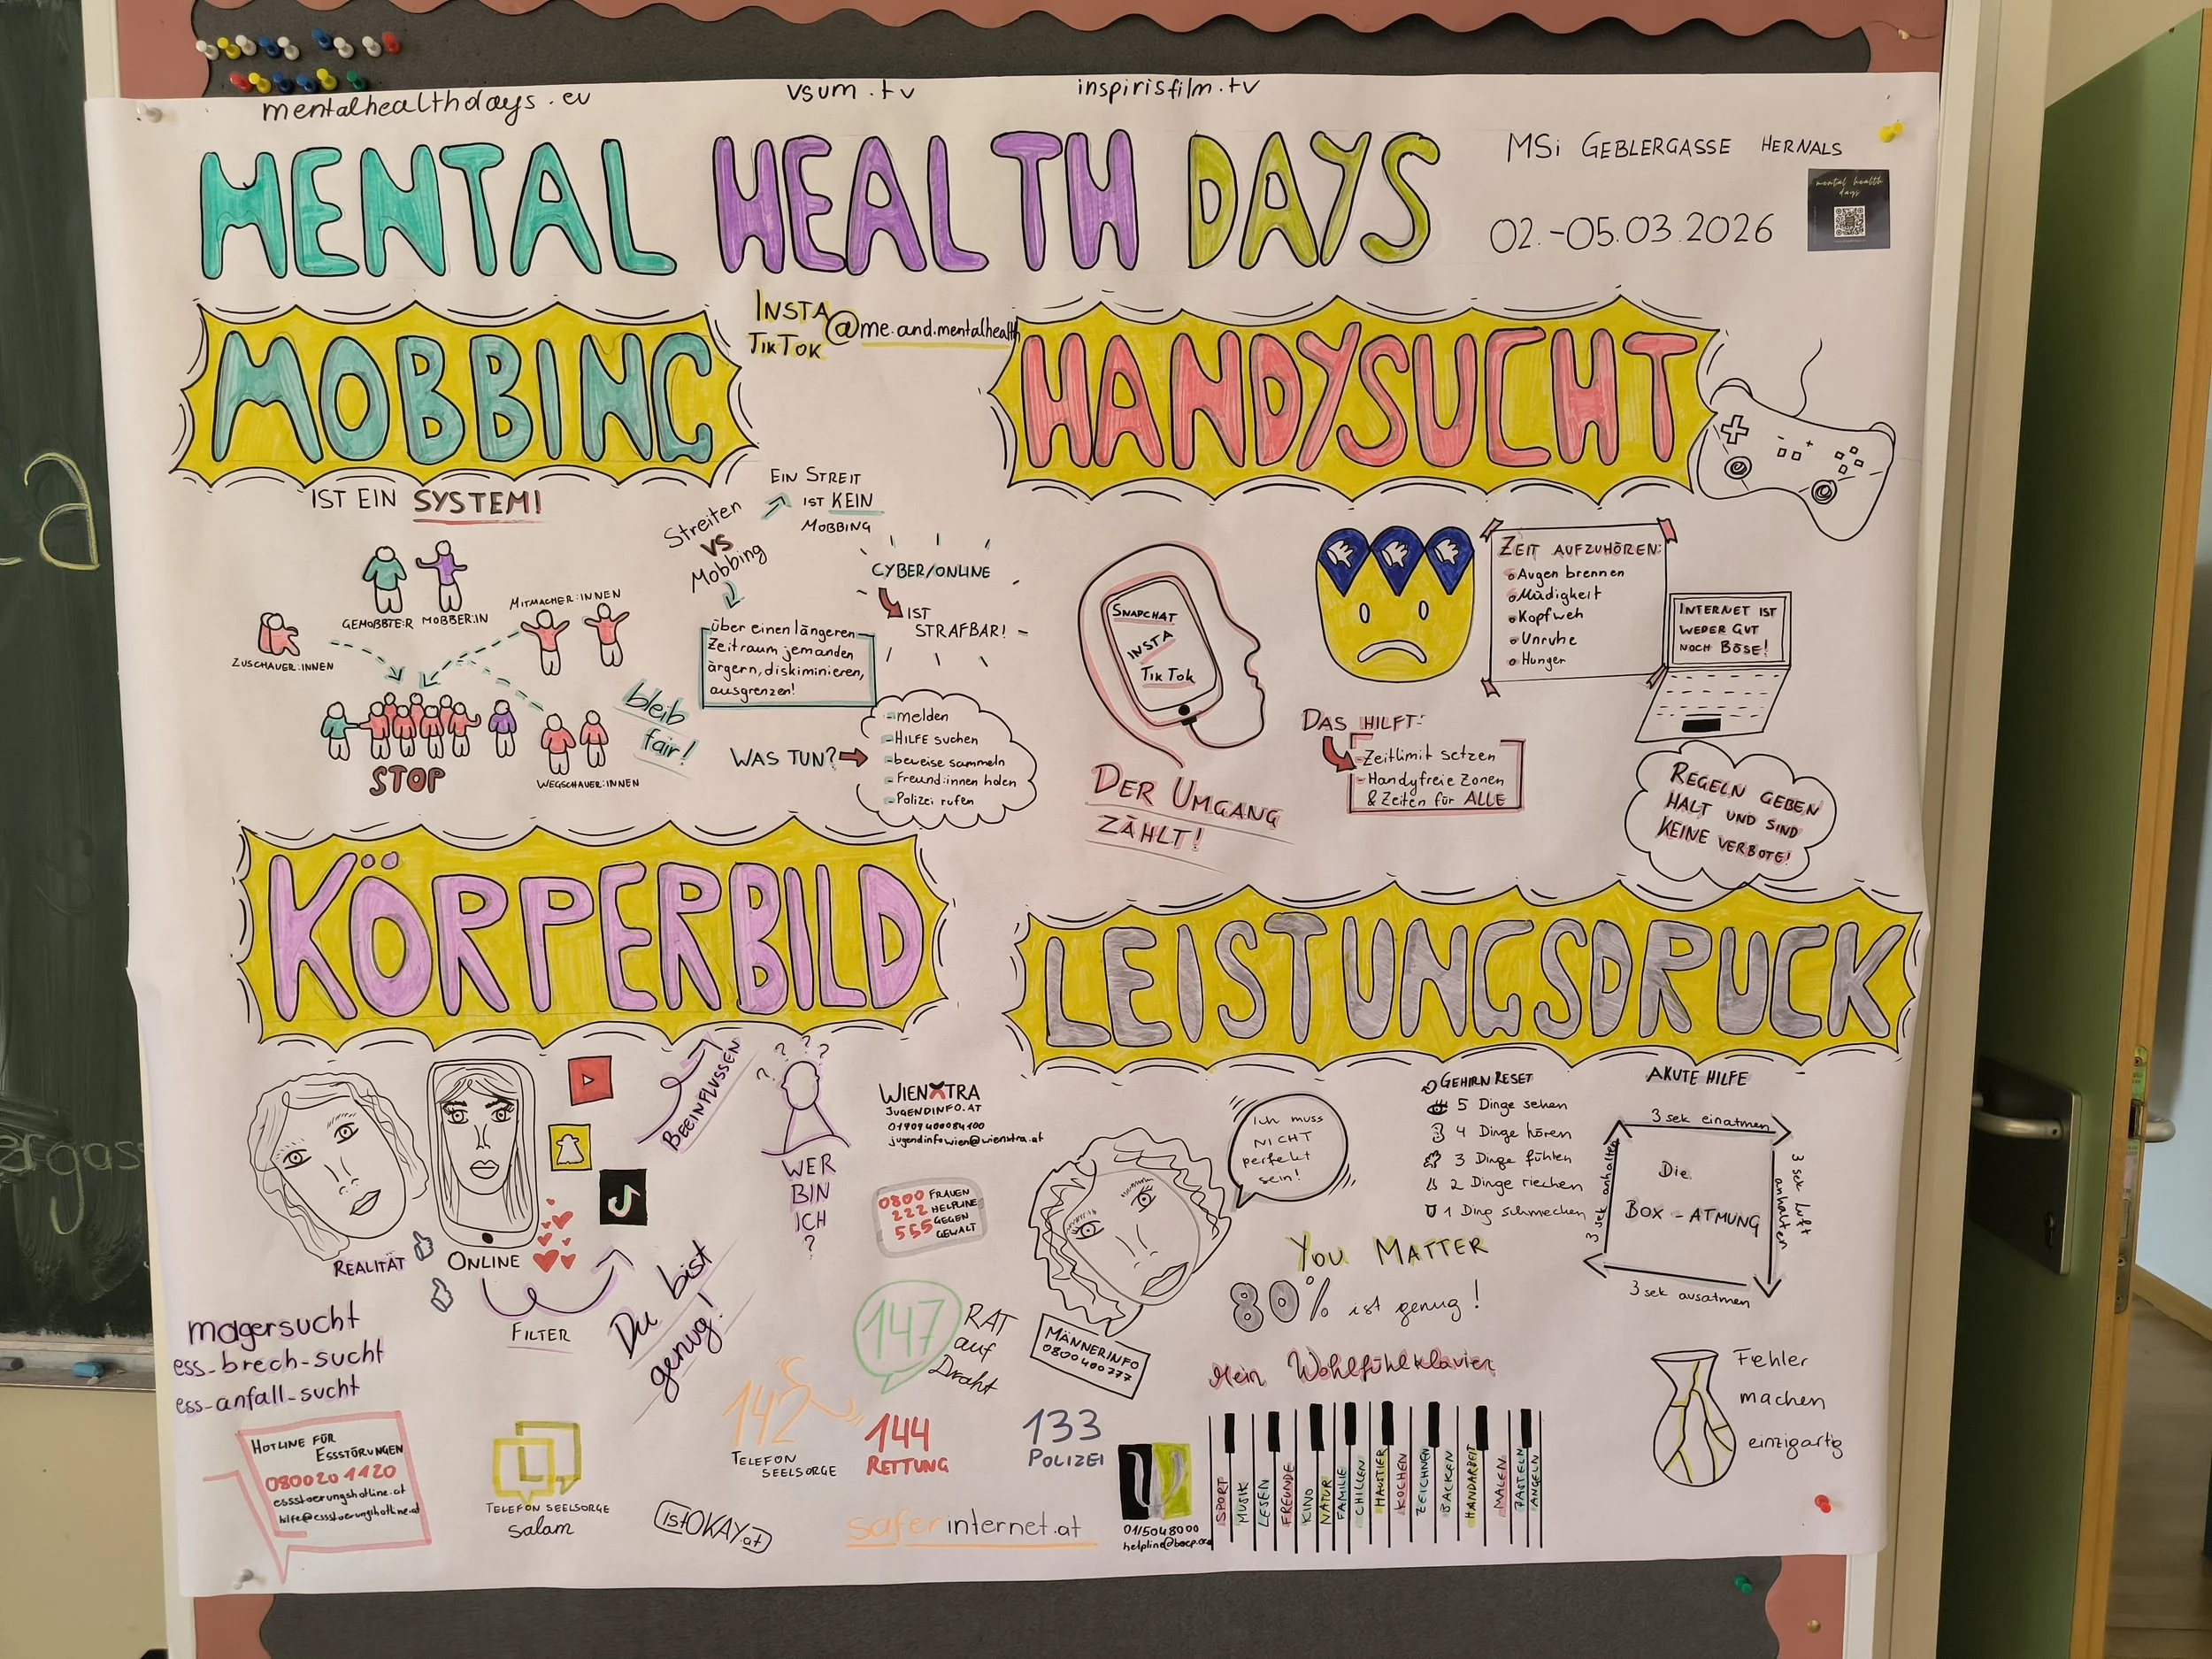 mentalhealthdays.eu
vsum.tv
inspirisfilm.tv
MENTAL HEALTH DAYS
MSi GEBLERGASSE HERNALS
02.-05.03.2026
mental health
days
MOBBING
IST EIN SYSTEM!
INSTA
TIKTOK
@me.and.mentalhealth
GEMOBBTE:R
MOBBER:IN
MITMACHER:INNEN
ZUSCHAUER:INNEN
WEGSCHAUER:INNEN
STOP
bleib
fair!
Streiten
VS
Mobbing
EIN STREIT
IST KEIN
MOBBING
über einen längeren
Zeitraum jemanden
ärgern, diskiminieren,
ausgrenzen!
CYBER/ONLINE
IST
STRAFBAR!
WAS TUN?
- melden
- HILFE suchen
- beweise sammeln
- Freund:innen holen
- Polizei rufen
HANDYSUCHT
SNAPCHAT
INSTA
TIKTOK
DER UMGANG
ZÄHLT!
ZEIT AUFZUHÖREN:
Augen brennen
Müdigkeit
Kopfweh
Unruhe
Hunger
DAS HILFT:
- Zeitlimit setzen
- Handyfreie Zonen
& Zeiten für ALLE
INTERNET IST
WEDER GUT
NOCH BÖSE!
REGELN GEBEN
HALT UND SIND
KEINE VERBOTE!
KÖRPERBILD
REALITÄT
ONLINE
FILTER
BEEINFLUSSEN
WER
BIN
ICH
?
Du bist
genug!
magersucht
ess-brech-sucht
ess-anfall-sucht
HOTLINE FÜR
ESSSTÖRUNGEN
0800 20 1120
essstoerungshotline.at
hilfe@essstoerungshotline.at
TELEFON SEELSORGE
salam
istOKAY.at
WIENXTRA
JUGENDINFO.AT
jugendinfowien@wienxtra.at
0800
222
555
FRAUEN
HELPLINE
GEGEN
GEWALT
147
RAT
auf
Draht
142
TELEFON
SEELSORGE
144
RETTUNG
133
POLIZEI
saferinternet.at
MÄNNERINFO
0800400777
01/5048000
LEISTUNGSDRUCK
Ich muss
NICHT
perfekt
sein!
GEHIRN RESET
5 Dinge sehen
4 Dinge hören
3 Dinge fühlen
2 Dinge riechen
1 Ding schmecken
AKUTE HILFE
3 sek einatmen
3 sek luft
anhalten
3 sek ausatmen
3 sek anhalten
Die
BOX-ATMUNG
YOU MATTER
80% ist genug!
Mein Wohlfühlklavier
SPORT
MUSIK
LESEN
FREUNDE
KINO
NATUR
FAMILIE
CHILLEN
HAUSTIER
KOCHEN
ZEICHNEN
BACKEN
HANDARBEIT
MALEN
BASTELN
ANGELN
Fehler
machen
einzigartig